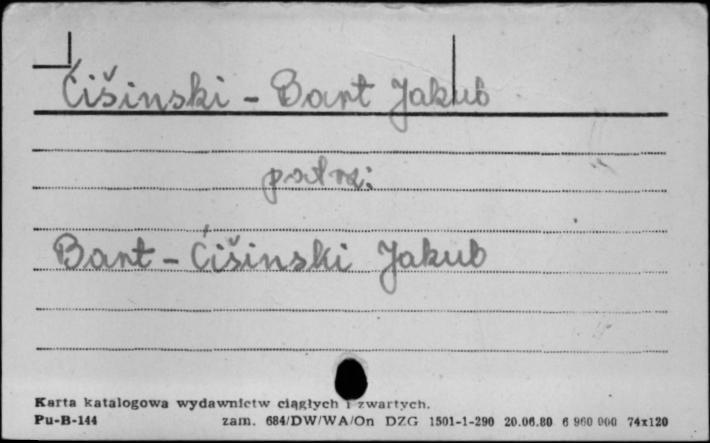 Ćišinski - Bart Jakub
patrz:
Bart - Ćišinski Jakub
Karta katalogowa wydawnictw ciągłych i zwartych.
Pu-B-144 zam. 684/DW/WA/On DZG 1501-1-290 20.06.80 6 960 000 74x120